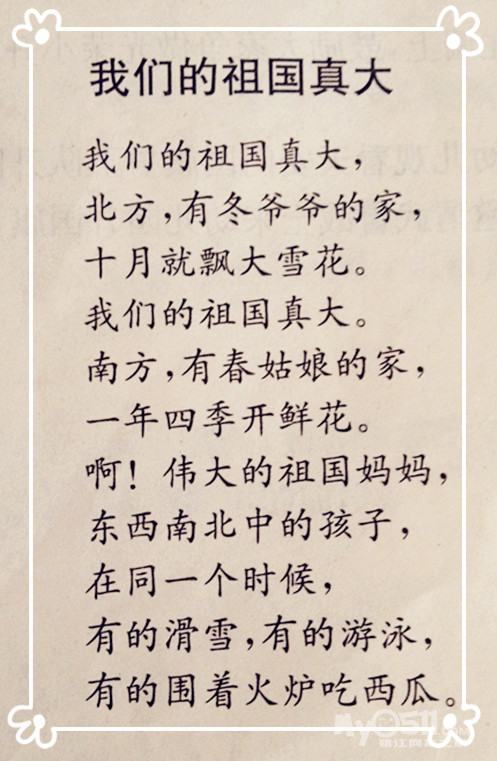 我们的祖国真大
我们的祖国真大，
北方，有冬爷爷的家，
十月就飘大雪花。
我们的祖国真大。
南方，有春姑娘的家，
一年四季开鲜花。
啊！伟大的祖国妈妈，
东西南北中的孩子，
在同一个时候，
有的滑雪，有的游泳，
有的围着火炉吃西瓜。